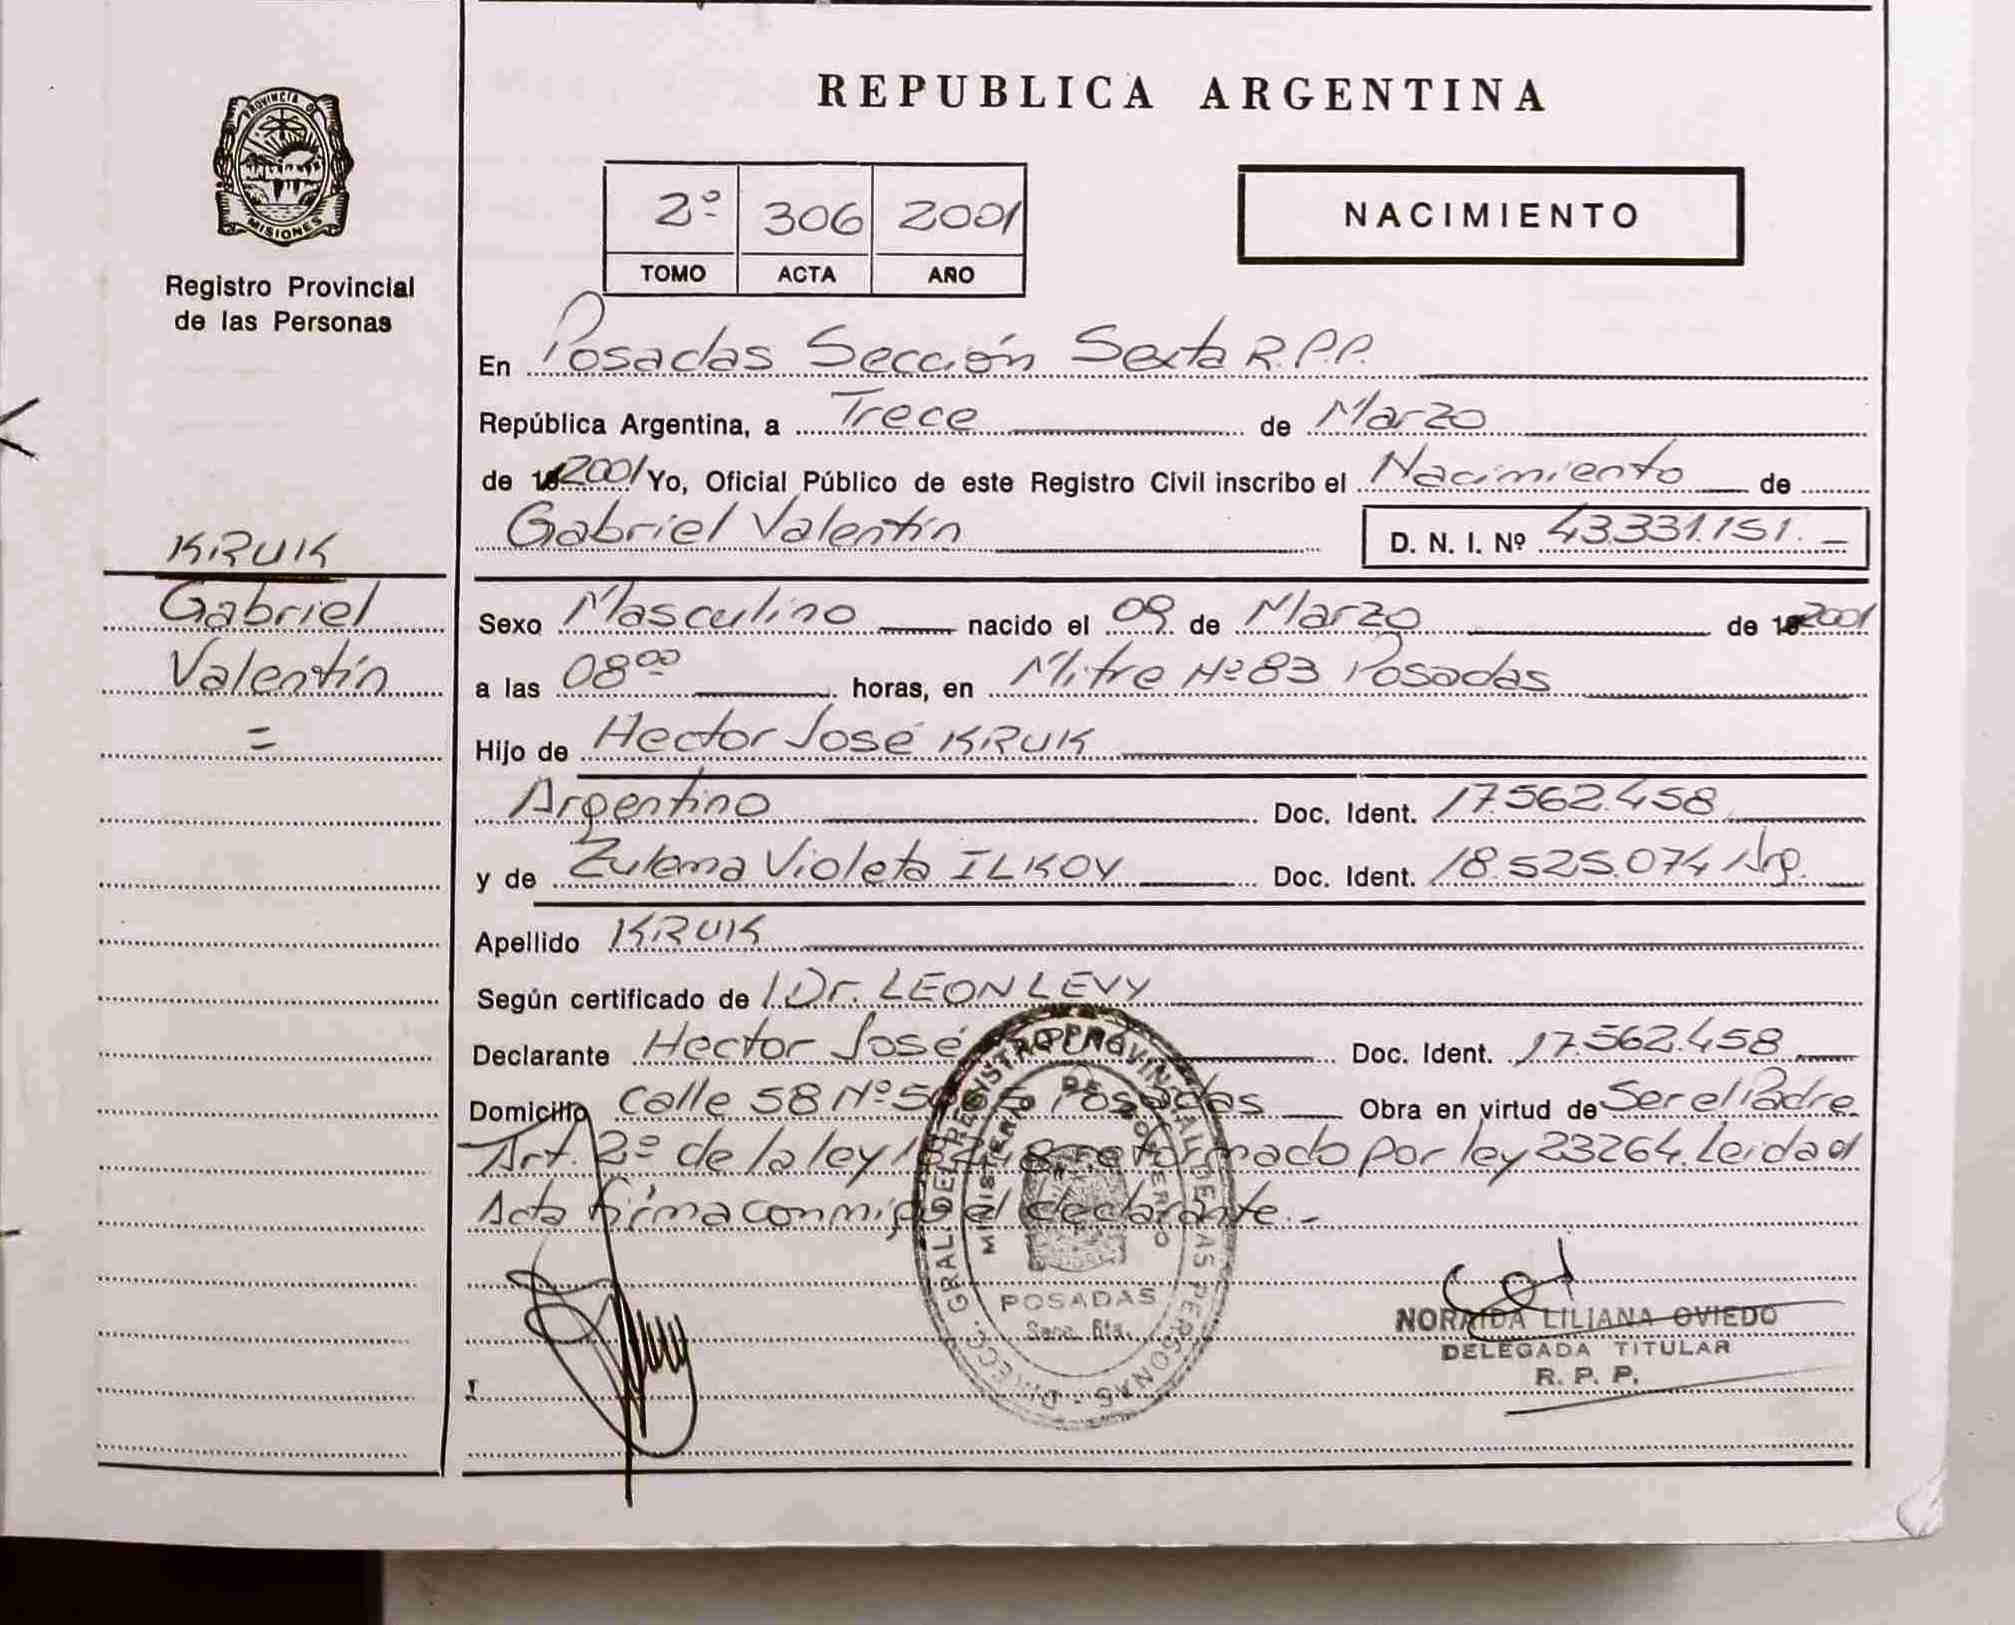 REPUBLICA ARGENTINA
PROVINCIA DE
MISIONES
Registro Provincial
de las Personas
2º 306 2001
TOMO ACTA AÑO
NACIMIENTO
En Posadas Sección Sexta R.P.P.
República Argentina, a Trece de Marzo
de 2001 Yo, Oficial Público de este Registro Civil inscribo el Nacimiento de
Gabriel Valentín D. N. I. Nº 43.331.151.-
KRUK
Gabriel
Valentín
=
Sexo Masculino nacido el 09 de Marzo de 2001
a las 08⁰⁰ horas, en Mitre Nº 83 Posadas
Hijo de Hector José KRUK
Argentino Doc. Ident. 17.562.458
y de Zulema Violeta ILKOV Doc. Ident. 18.525.074 Arg.
Apellido KRUK
Según certificado de Dr. LEON LEVY
Declarante Hector José Doc. Ident. 17.562.458
Domicilio Calle 58 Nº Posadas Obra en virtud de Ser el Padre
Art. 2º de la ley reformado por ley 23264. Leída el
Acta firma conmigo el declarante.-
DIRECC. GRAL. DEL REGISTRO PROVINCIAL DE LAS PERSONAS
MINISTERIO DE GOBIERNO
POSADAS
Secc. 6ta.
NORMIDA LILIANA OVIEDO
DELEGADA TITULAR
R. P. P.